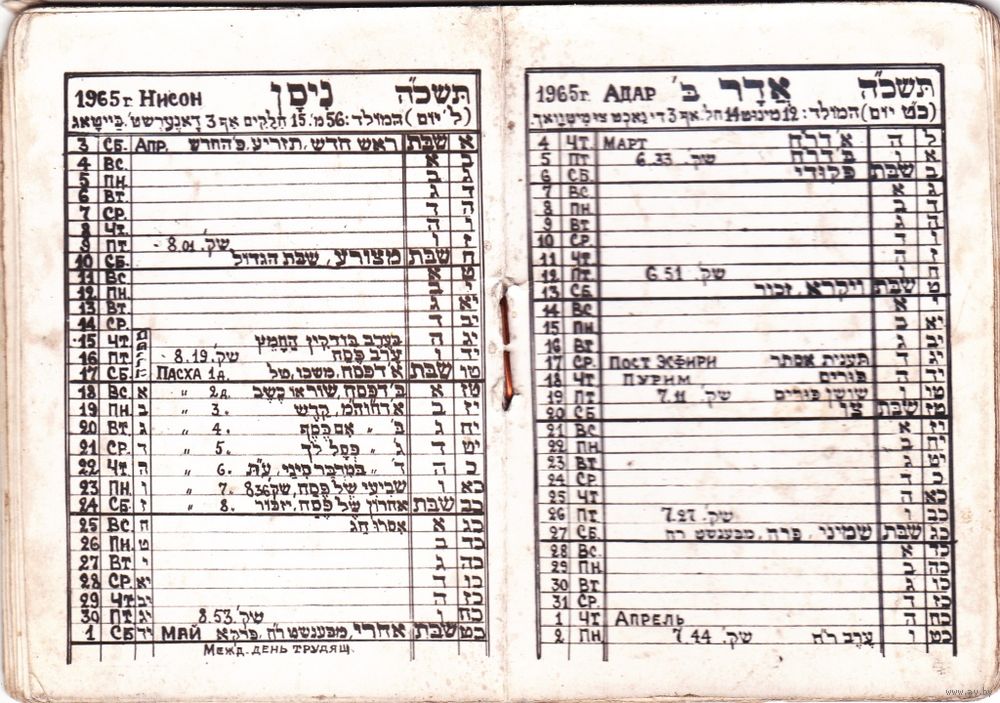 1965г. АДАР אֲדָר ב' תשכ"ה
(כ"ט יום) המולד: 12 מינוט 14 חל. אף 3 די נאכט צי מיטוואך.
4 ЧТ. МАРТ א' דר"ח ה ל
5 ПТ 6.33 שק'. ב' דר"ח ו א
6 СБ. פקודי שבת ב
7 ВС א ג
8 ПН ב ד
9 ВТ ג ה
10 СР. ד ו
11 ЧТ ה ז
12 ПТ. 6.51 שק'. ו ח
13 СБ. ויקרא, זכור שבת ט
14 ВС א י
15 ПН. ב יא
16 ВТ ג יב
17 СР. ПОСТ ЭСФИРИ תענית אסתר ד יג
18 ЧТ ПУРИМ פורים ה יד
19 ПТ 7.11 שק'. שושן פורים ו טו
20 СБ צו שבת טז
21 ВС א יז
22 ПН. ב יח
23 ВТ ג יט
24 СР ד כ
25 ЧТ ה כא
26 ПТ 7.27 שק'. ו כב
27 СБ. שמיני, פרה, מבענטשט ר"ח שבת כג
28 ВС. א כד
29 ПН. ב כה
30 ВТ ג כו
31 СР. ד כז
1 ЧТ АПРЕЛЬ ה כח
2 ПН. 7.44 שק'. ערב ר"ח ו כט
1965г НИСОН נִיסָן תשכ"ה
(ל' יום) המולד: 56 מ'. 15 חלקים אף 3 דאנערשט. בייטאג
3 СБ. АПР. ראש חדש, תזריע, פ' החדש שבת א
4 ВС. א ב
5 ПН. ב ג
6 ВТ. ג ד
7 СР. ד ה
8 ЧТ. ה ו
9 ПТ 8.01 שק'. ו ז
10 СБ. מצורע, שבת הגדול שבת ח
11 ВС א ט
12 ПН. ב י
13 ВТ. ג יא
14 СР. ד יב
15 ЧТ. בערב בודקין החמץ ה יג
16 ПТ 8.19. שק'. ערב פסח ו יד
17 СБ. ПАСХА 1д. א' דפסח, משכו, טל שבת טו
18 ВС א " 2д. ב' דפסח, שור או כשב א טז
19 ПН. ב " 3. א' דחוה"מ, קדש ב יז
20 ВТ ג " 4. ב' " אם כסף ג יח
21 СР. ד " 5. ג' " פסל לך ד יט
22 ЧТ ה " 6. ד' " במדבר סיני, ע"ת ה כ
23 ПН. ו " 7. שביעי של פסח, שק' 8 36 ו כא
24 СБ. ז " 8. אחרון של פסח, יזכור שבת כב
25 ВС. ח אסרו חג א כג
26 ПН. ט ב כד
27 ВТ י ג כה
28 СР. יא ד כו
29 ЧТ יב ה כז
30 ПТ. יג 8.53 שק'. ו כח
1 СБ יד МАЙ אחרי, מבענטשט ר"ח, פרקא שבת כט
МЕЖД. ДЕНЬ ТРУДЯЩ.
www.ay.by